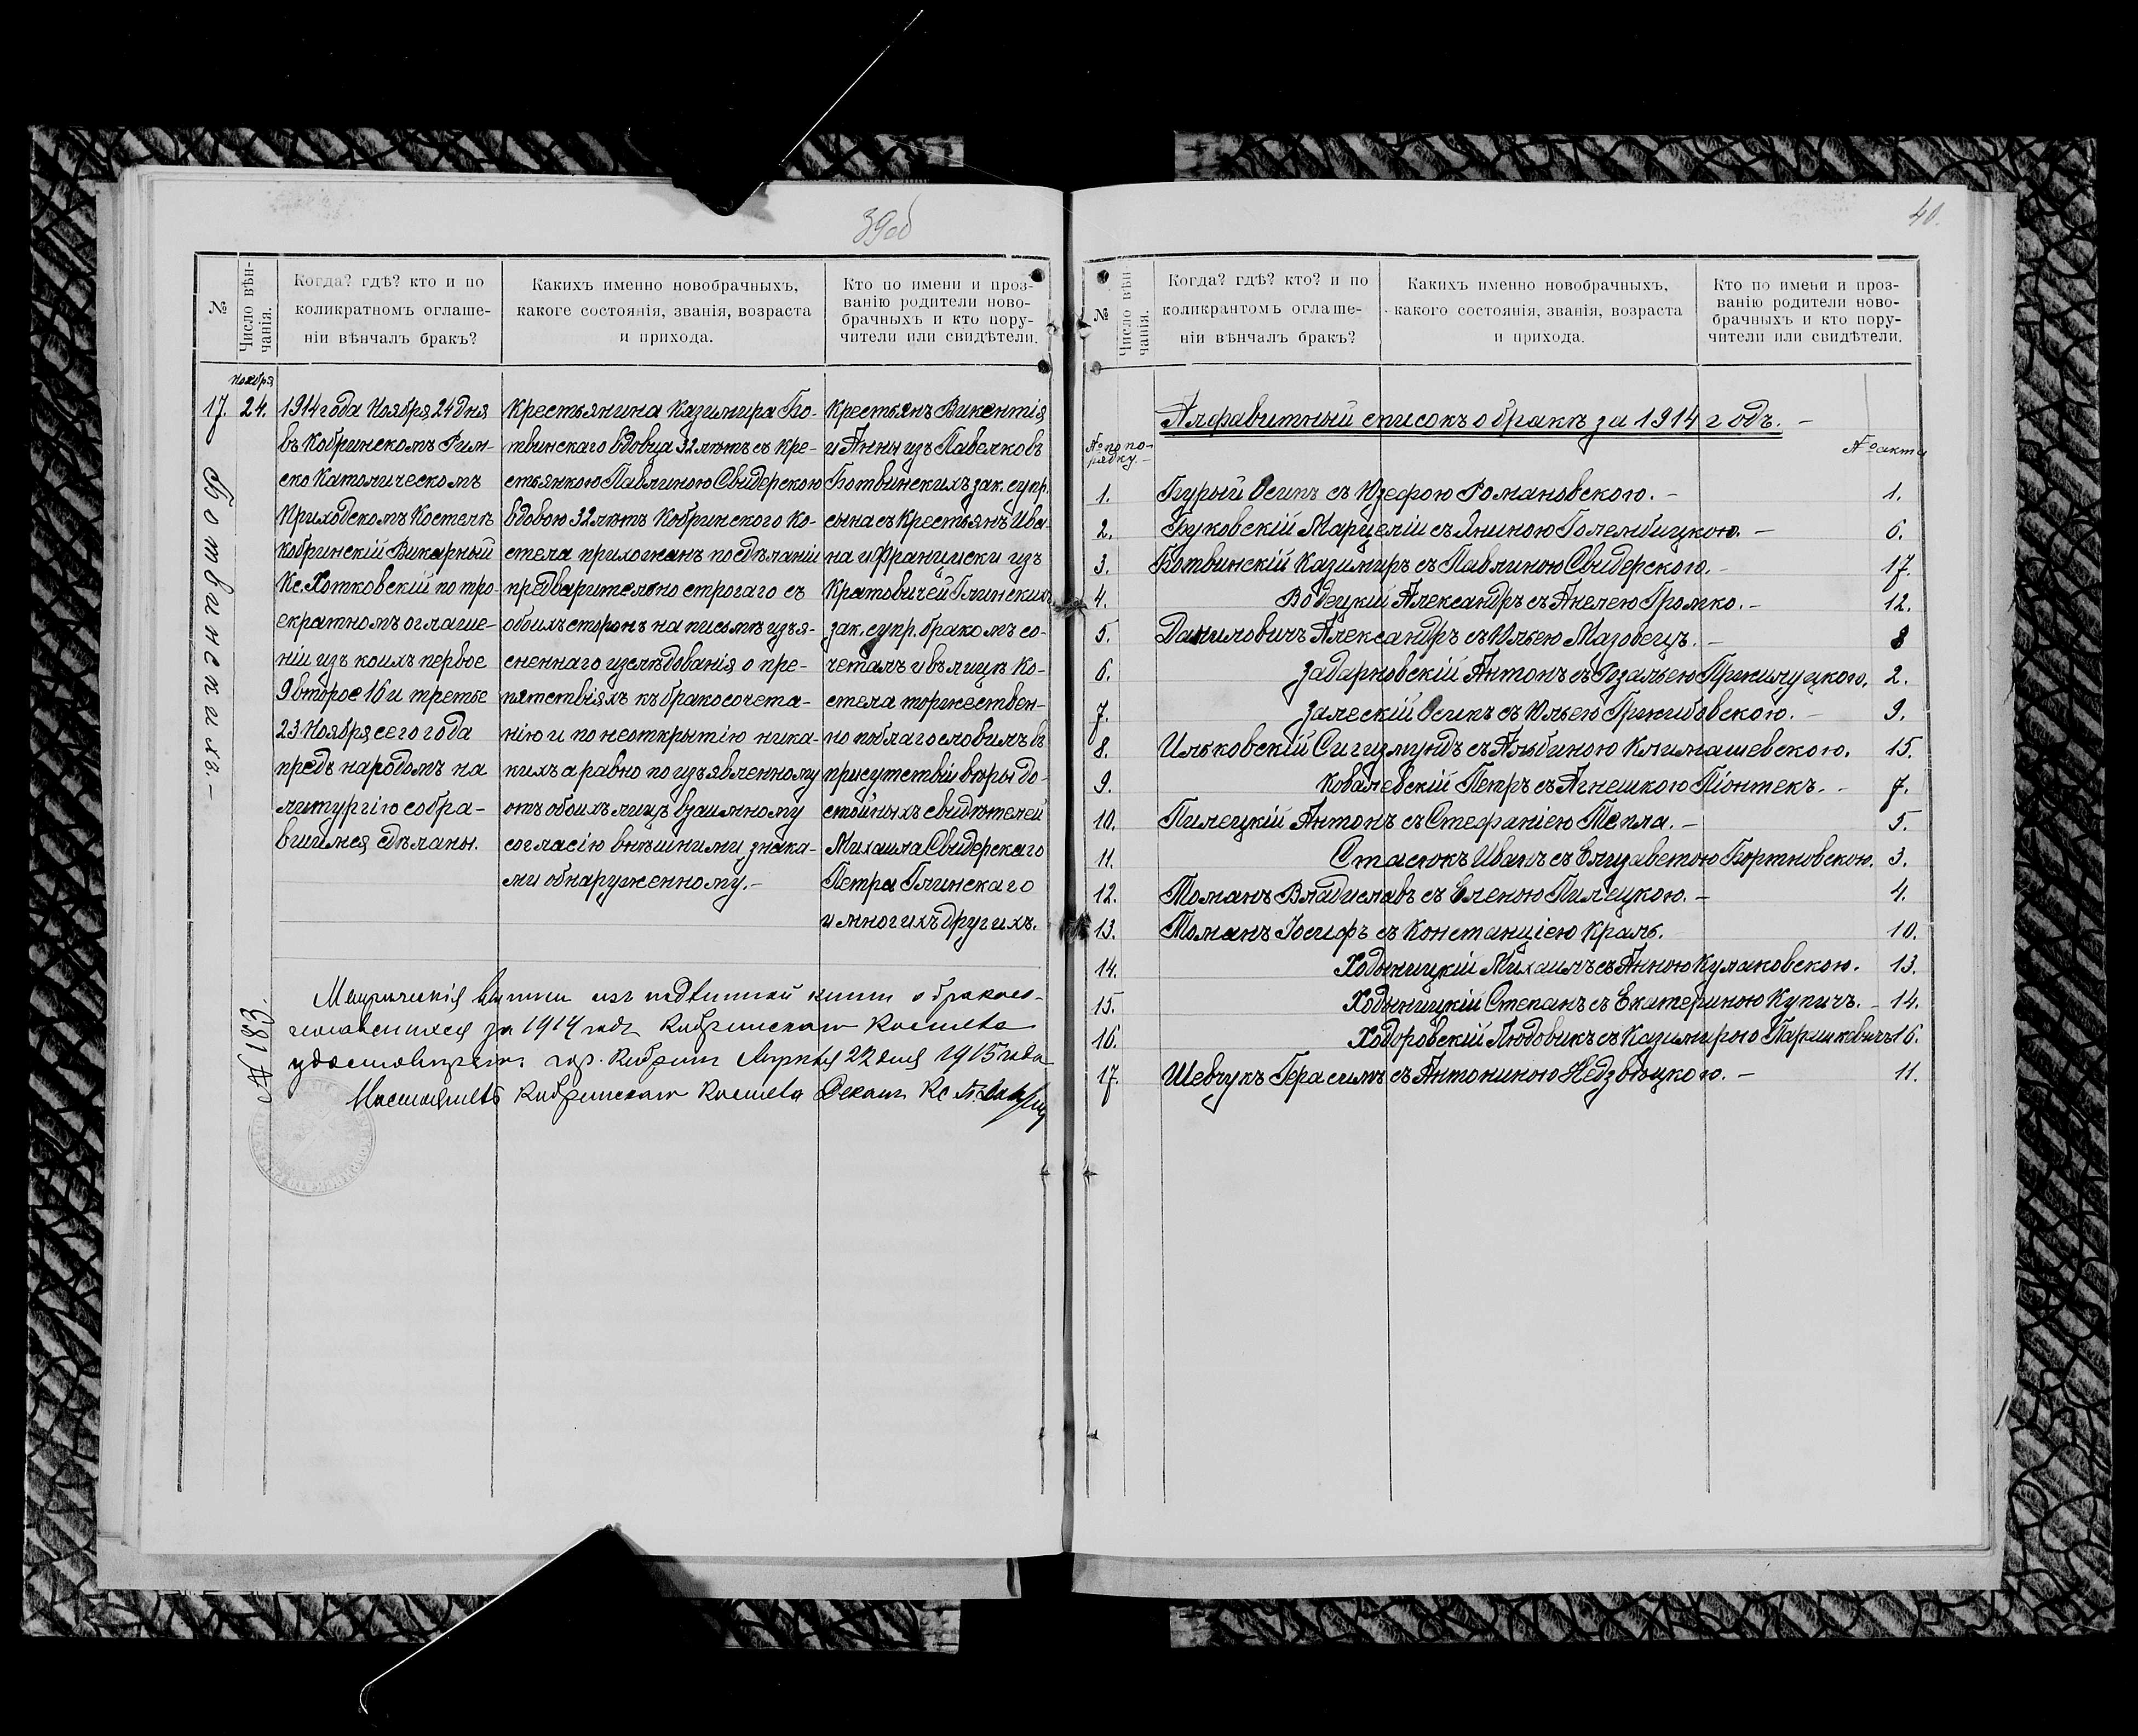 39об
№
Число вѣн-
чанія.
Когда? гдѣ? кто и по
коликратномъ оглаше-
ніи вѣнчалъ бракъ?
Какихъ именно новобрачныхъ,
какоге состоянія, званія, возраста
и прихода.
Кто по имени и проз-
ванію родители ново-
брачныхъ и кто пору-
чители или свидѣтели.
Ноября
17. 24.
Ботвинскихъ.-
1914 года Ноября 24 дня
въ Кобринскомъ Рим-
ско Католическомъ
Приходскомъ Костелѣ
Кобринскій Викарный
Кс. Хотковскій по тро-
екратномъ оглаше-
ніи изъ коихъ первое
9 второе 16 и третье
23 Ноября сего года
предъ народомъ на
литургію собра-
вшимся сдѣланы.
Крестьянина Казимира Бо-
твинскаго вдовца 32 лѣтъ съ Кре-
стьянкою Павлиною Свидерскою
вдовою 32 лѣтъ Кобринского Ко-
стела прихожанъ по сдѣланіи
предварительно строгаго съ
обоихъ сторонъ на письмѣ изъя-
сненнаго изслѣдованія о пре-
пятствіяхъ къ бракосочета-
нію и по неоткрытію ника-
кихъ а равно по изъявленному
отъ обоихъ лицъ взаимному
согласію внѣшними знака-
ми обнаруженному.-
Крестьянъ Викентія
и Анны изъ Павелковъ
Ботвинскихъ зак. супр.
сына съ Крестьянъ Ива-
на и Франциски изъ
Кратовичей Глинскихъ
зак. супр. бракомъ со-
четалъ и въ лицѣ Ко-
стела торжествен-
но поблагословилъ въ
присутствіи вѣры до-
стойныхъ свидѣтелей
Михаила Свидерскаго
Петра Глинскаго
и многихъ другихъ.
№ 183.
Метрическія выписи изъ подлинной книги о бракосо-
четавшихся за 1914 годъ Кобринскаго Костела
удостовѣряю. гор. Кобринъ Апрѣля 22 дня 1915 года
Настоятель Кобринскаго Костела Деканъ Кс.
40.
№
Число вѣн-
чанія.
Когда? гдѣ? кто? и по
коликрантомъ оглаше-
ніи вѣнчалъ бракъ?
Какихъ именно новобрачныхъ,
какого состоянія, званія, возраста
и прихода.
Кто по имени и проз-
ванію родители ново-
брачныхъ и кто пору-
чители или свидѣтели.
Алфавитный списокъ о бракѣ за 1914 годъ. -
№ по по-
рядку.-
№ акта
1. Бурый Осипъ съ Юзефою Романовскою. - 1.
2. Буковскій Марцелій съ Яниною Голембицкою. - 6.
3. Ботвинскій Казимиръ съ Павлиною Свидерскою. - 17.
4. Водецкій Александръ съ Анелею Громко. - 12.
5. Даниловичъ Александръ съ Юльею Мазовецъ. - 8
6. Задарновскій Антонъ съ Розальею Прилуцкою. 2.
7. Залескій Осипъ съ Юльею Гриневскою. - 9.
8. Ильковскій Сигизмундъ съ Альбиною Климашевскою. 15.
9. Ковалевскій Петръ съ Агнешкою Піонтекъ. - 7.
10. Пилецкій Антонъ съ Стефаніею Тепла. - 5.
11. Стасюкъ Иванъ съ Елизаветою Бортновскою. 3.
12. Томанъ Владиславъ съ Еленою Пилецкою. - 4.
13. Томанъ Іосифъ съ Констанціею Краль. 10.
14. Ходыницкій Михаилъ съ Анною Кулаковскою. 13.
15. Ходыницкій Степанъ съ Екатериною Купичъ. - 14.
16. Ходоровскій Людовикъ съ Казимирою 16.
17. Шевчукъ Герасимъ съ Антониною Недзвѣцкою. - 11.